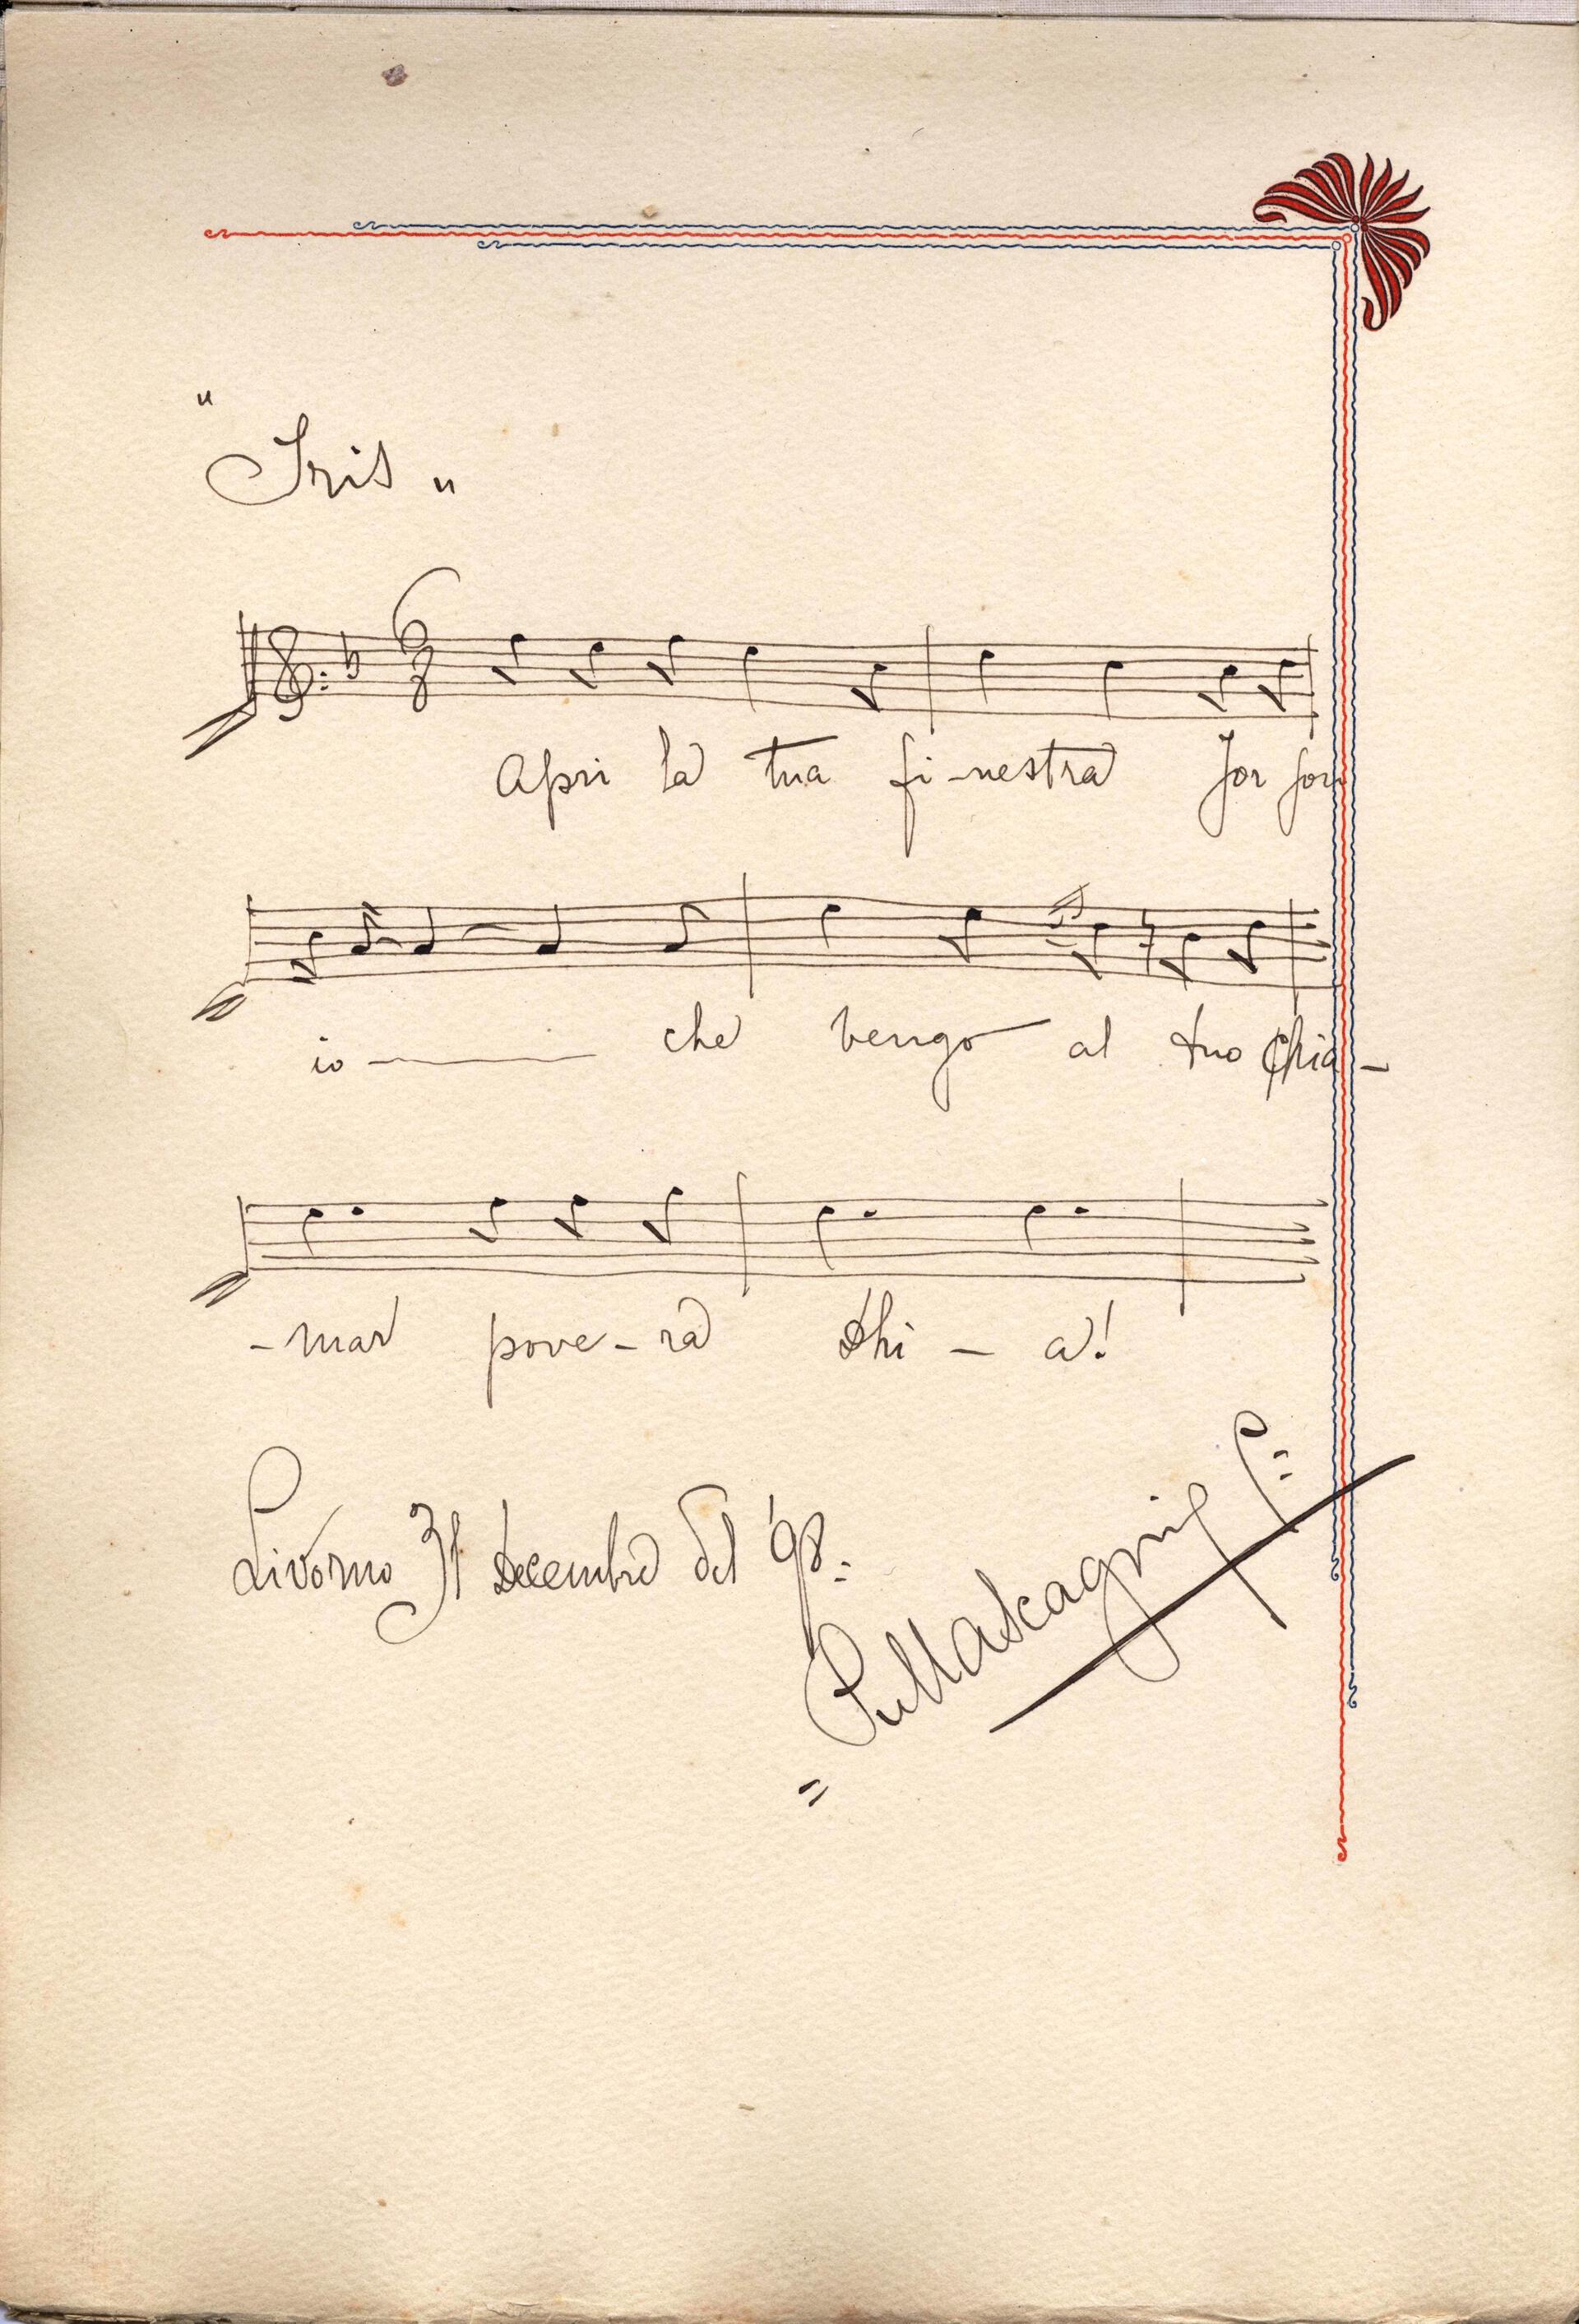 "Iris"
6
8
Apri la tua fi-nestra Jor son
io — che vengo al tuo chia-
-mar pove-ra Dhi - a!
Livorno 31 Decembre del '98.
PMascagni